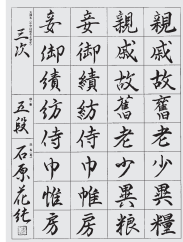 親戚故舊老少異糧
親戚故舊老少異粮
妾御績紡侍巾帷房
妾御績紡侍巾帷房
三次 五段 石原花純